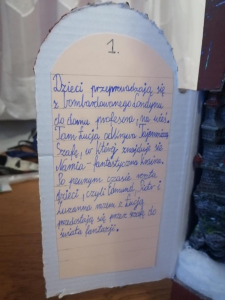 1.
Dzieci przeprowadzają się
z bombardowanego Londynu
do domu profesora, na wieś.
Tam Łucja odkrywa tajemniczą
Szafę, w której znajduje się
Narnia - fantastyczna kraina.
Po pewnym czasie reszta
dzieci, czyli Edmund, Piotr i
Zuzanna razem z Łucją
przedostają się przez szafę do
świata fantazji.